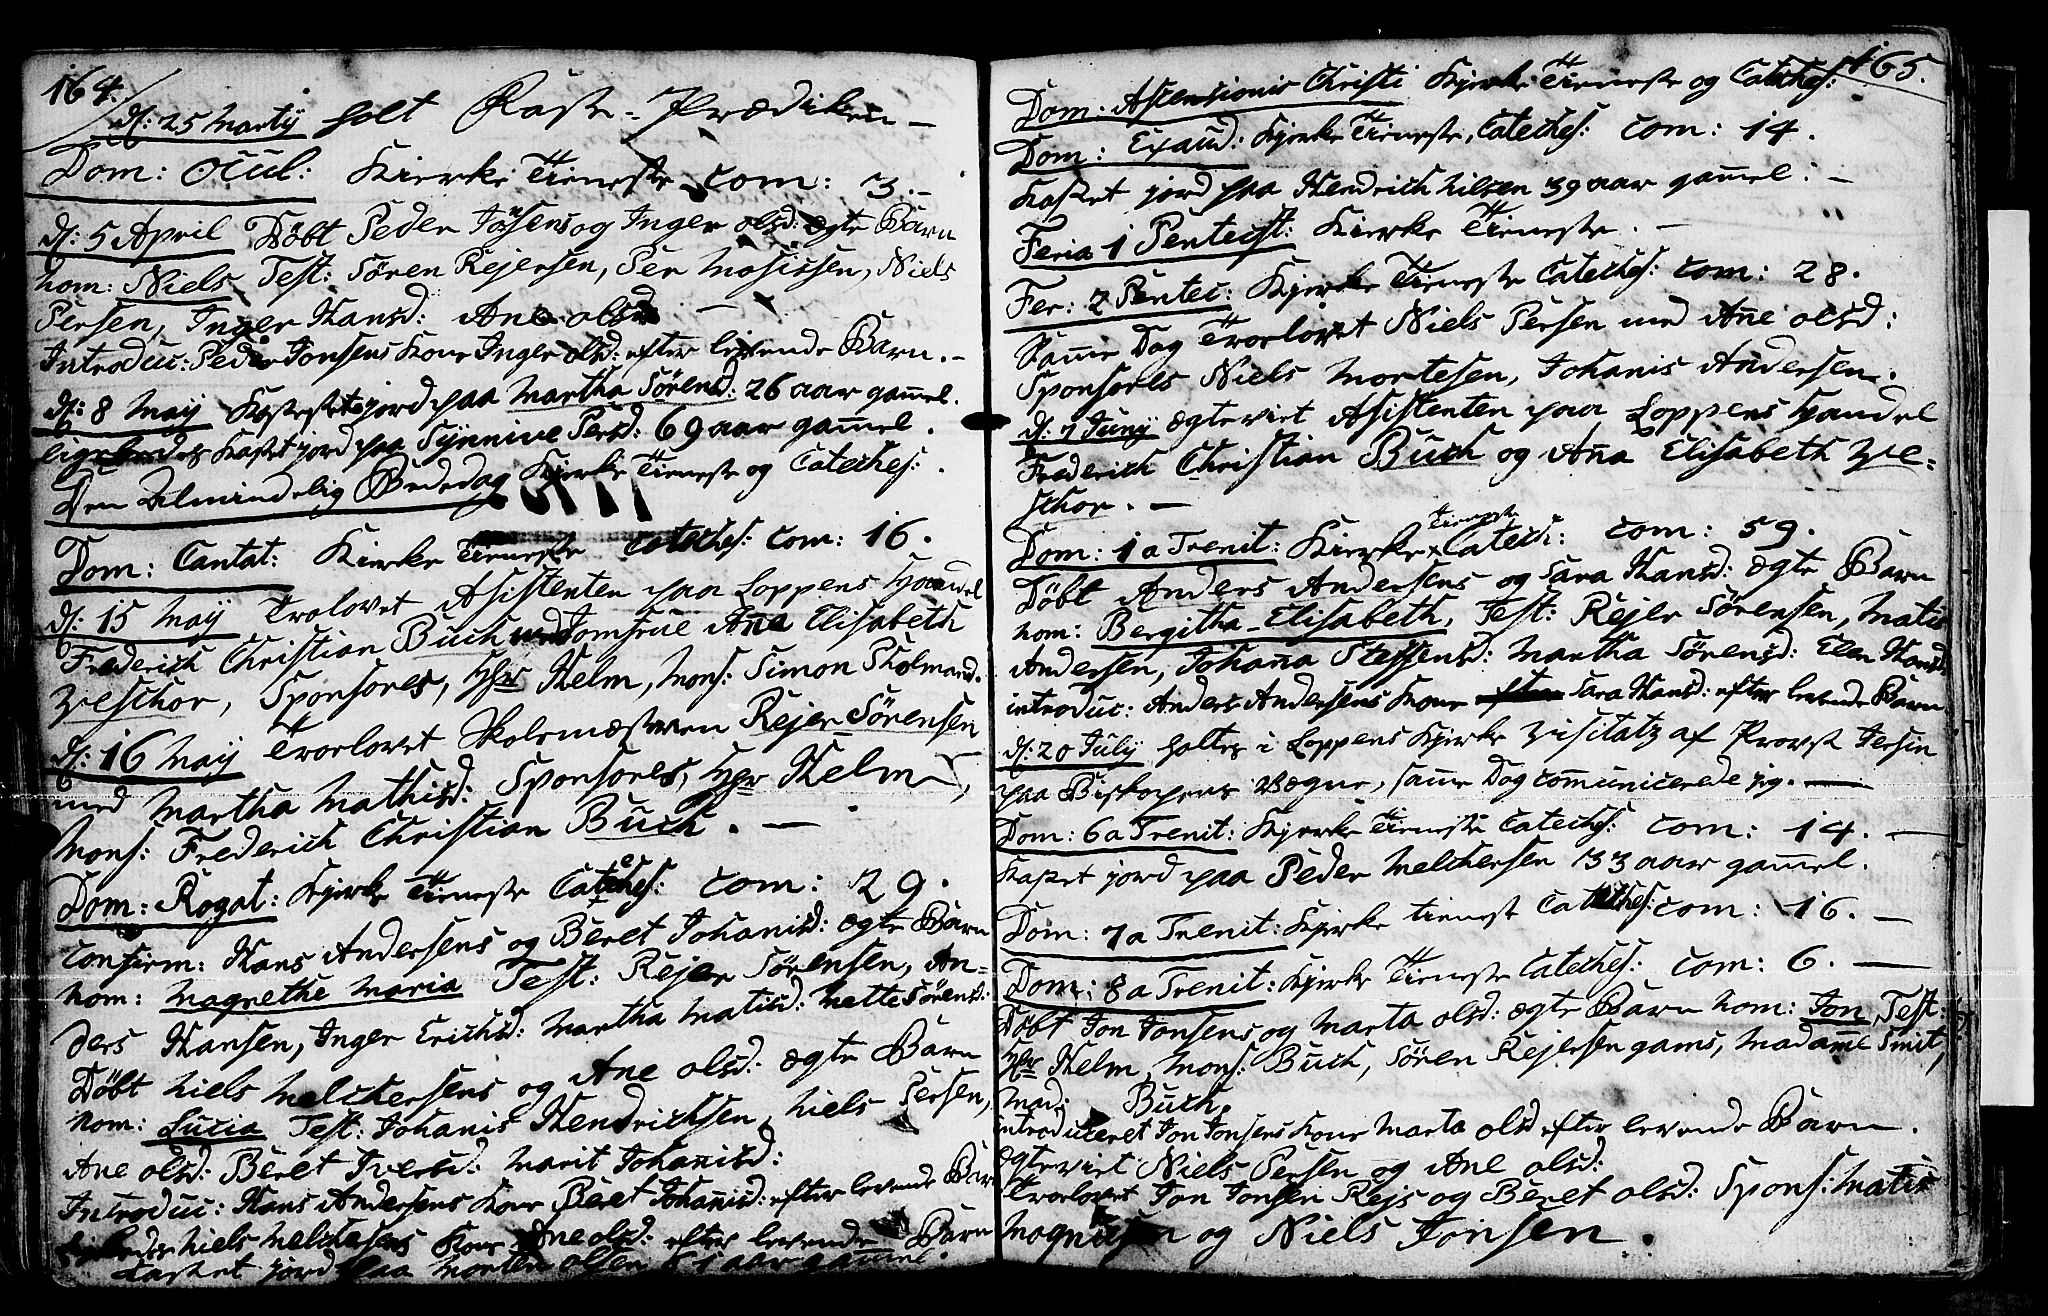 164.
d: 25 Martij holt Faste-Prædiken –
Dom: Ocul: Kierke Tieneste com: 3. –
d: 5 April Døbt Peder Jonsens og Inger olsd: ægte Barn
nom: Niels Test: Sören Rejersen, Per Mosissen, Niels
Persen, Inger Hansd: Ane olsd –
Introduc: Peder Jonsens Kone Inger olsd: efter levende Barn. –
d: 8 May Kastet jord paa Martha Sörensd: 26 aar gamel.
ligeledes Kastet jord paa Synnive Persd: 69 aar gamel.
Den Almindelig Bededag Kjerke Tieneste og Cateches:
Dom: Cantat: Kierke Tieneste Cateches: com: 16.
d: 15 May Trolovet Assistenten paa Loppens Handel
Frederich Christian Buch med Jomfrue Ane Elisabeth
Zeschor, Sponsores, Hr Helm, Mons: Simon Kholmand.
d: 16 May Troelovet Skolemæsteren Rejer Sörensen
med Martha Mathisd: Sponsores, Hr Helm,
Mons: Frederich Christian Buch. –
Dom: Rogat: Kjerke Tieneste Cateches: com: 29.
Confirm: Hans Andersens og Beret Johanisd: ægte Barn
nom: Magrethe Maria Test: Rejer Sörensen, An=
ders Hansen, Inger Erichsd: Martha Matisd: Mette Sörensd:
Døbt Niels Melchersens og Ane olsd: ægte Barn
nom: Lucia Test: Johanis Hendrichsen, Niels Persen,
Ane olsd: Beret Iversd: Marit Johanisd:
Introduc: Hans Andersens Kone Beret Johanisd: efter levende Barn
ligeledes Niels Melchersens Kone Ane olsd: efter levende Barn
Kastet jord paa Morten olsen 51 aar gamel.
165.
Dom: Ascensionis Christi Kjerke Tieneste og Cateches:
Dom: Exaud: Kjerke Tieneste, Cateches: com: 14.
Kastet jord paa Hendrich Nilsen 39 aar gamel. –
Feria 1 Pentecst: Kierke Tieneste. –
Fer: 2 Pentec: Kjerke Tieneste Cateches: com: 28.
Samme Dag Troelovet Niels Persen med Ane olsd:
Sponsores Niels Mortesen, Johanis Andersen.
d: 7 Junij ægteviet Assistenten paa Loppens Handel
Frederich Christian Buch og Ana Elisabeth Ze=
schor. –
Dom: 1 a Trenit: Kierke Tieneste Catech: com: 59.
Døbt Anders Andersens og Sara Hansd: ægte Barn
nom: Bergitha Elisabeth, Test: Rejer Sörensen, Matis
Andersen, Johana Steffensd: Martha Sörensd: Elen Hansd:
introduc: Anders Andersens Kone efter Sara Hansd: efter levende Barn
d: 20 July holtes i Loppens Kjerke Visitatz af Provst Jersin
paa Biskopens Vægne, same Dag comunicerede jeg. –
Dom: 6 a Trenit: Kjerke Tieneste Cateches: com: 14. –
Kastet jord paa Peder Melchersen 33 aar gamel.
Dom: 7 a Trenit: Kjerke tieneste Cateches: com: 16. –
Dom: 8 a Trenit: Kjerke Tieneste Cateches: com: 6. –
Døbt Jon Jonsens og Marta olsd: ægte Barn nom: Jon, Test:
Hr Helm, Mons: Buch, Sören Rejersen gams, Madame Smit,
Mad: Buch.
introduceret Jon Jonsens Kone Marta olsd efter levende Barn.
ægteviet Niels Persen og Ane olsd:
Troelovet Jon Jonsen Rejs og Beret olsd: Spons: Matis
Magnusen og Niels Jonsen.